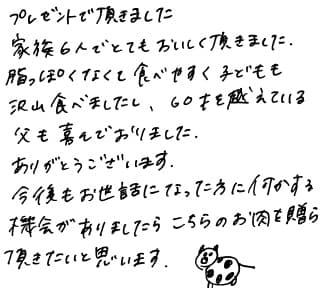 プレゼントで頂きました
家族6人でとてもおいしく頂きました.
脂っぽくなくて食べやすく子どもも
沢山食べましたし、60才を越えている
父も喜んでおりました.
ありがとうございます.
今後もお世話になった方に何かする
機会がありましたらこちらのお肉を贈ら
頂きたいと思います.